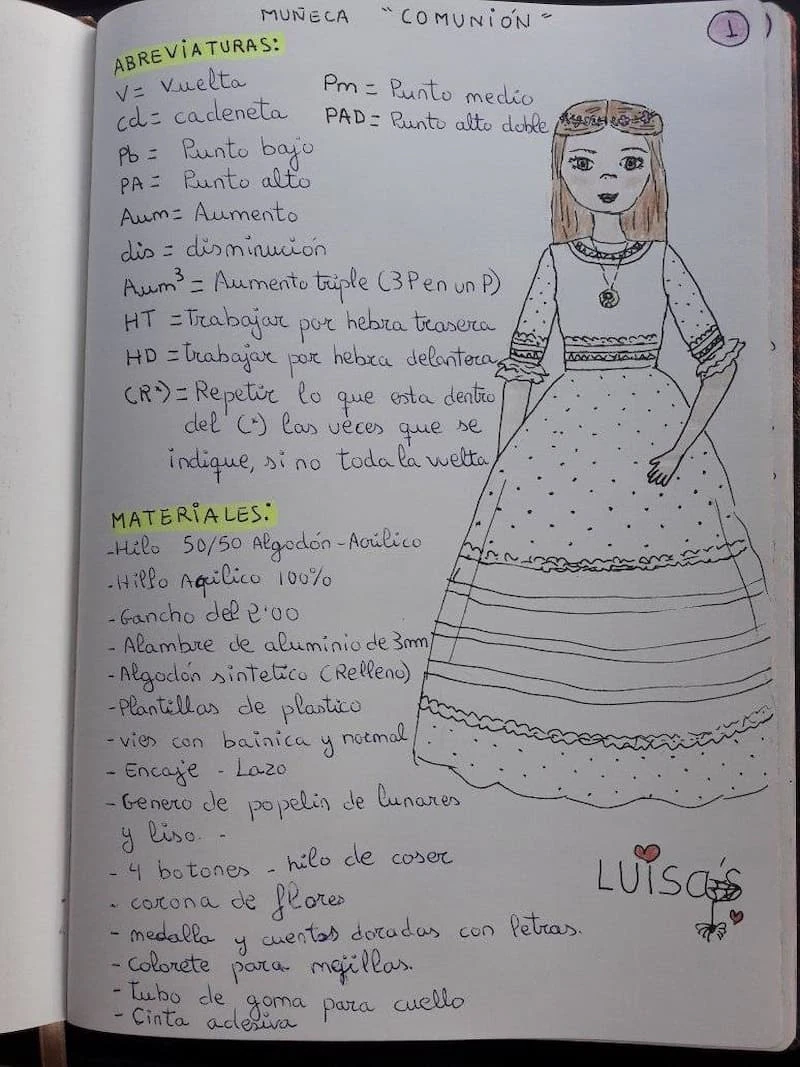 MUÑECA "COMUNIÓN"
1
ABREViATURAS:
V= Vuelta
cd= cadeneta
Pb = Punto bajo
PA = Punto alto
Pm = Punto medio
PAD = Punto alto doble
Aum= Aumento
dis = disminución
Aum³ = Aumento triple (3P en un P)
HT = trabajar por hebra trasera
HD = trabajar por hebra delantera
(R*) = Repetir lo que esta dentro
del (*) las veces que se
indique, si no toda la vuelta
MATERiALES:
-Hilo 50/50 Algodón-Acrílico
-Hillo Aqilico 100%
-Gancho del 2'00
- Alambre de aluminio de 3mm
-Algodón sintetico (Relleno)
-Plantillas de plastico
-vies con bainica y normal
- Encaje - Lazo
- Genero de popelin de lunares
y liso. -
- 4 botones - hilo de coser
- corona de flores
- medalla y cuentas doradas con letras.
- Colorete para mejillas.
- tubo de goma para cuello
- Cinta adesiva
LUiSa's